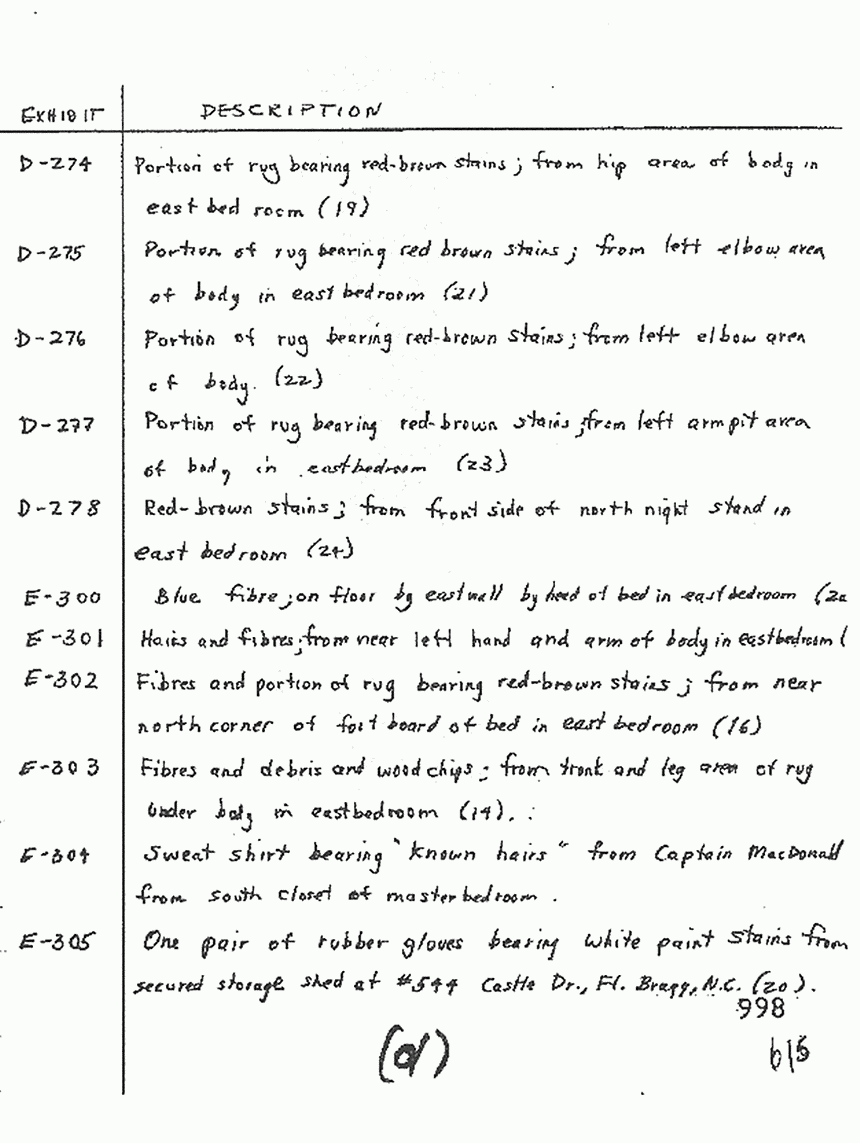 EXHIBIT DESCRIPTION
D-274 Portion of rug bearing red-brown stains; from hip area of body in
east bed room (19)
D-275 Portion of rug bearing red brown stains; from left elbow area
of body in east bedroom (21)
D-276 Portion of rug bearing red-brown stains; from left elbow area
of body. (22)
D-277 Portion of rug bearing red-brown stains; from left armpit area
of body in east bedroom (23)
D-278 Red-brown stains; from front side of north night stand in
east bedroom (24)
E-300 Blue fibre; on floor by east wall by head of bed in east bedroom (2a
E-301 Hairs and fibres; from near left hand and arm of body in east bedroom (
E-302 Fibres and portion of rug bearing red-brown stains; from near
north corner of foot board of bed in east bedroom (16)
E-303 Fibres and debris and wood chips; from trunk and leg area of rug
under body in east bedroom (14).
E-304 Sweat shirt bearing "known hairs" from Captain MacDonald
from south closet of master bedroom.
E-305 One pair of rubber gloves bearing white paint stains from
secured storage shed at #544 Castle Dr., Ft. Bragg, N.C. (20).
998
(d)
615